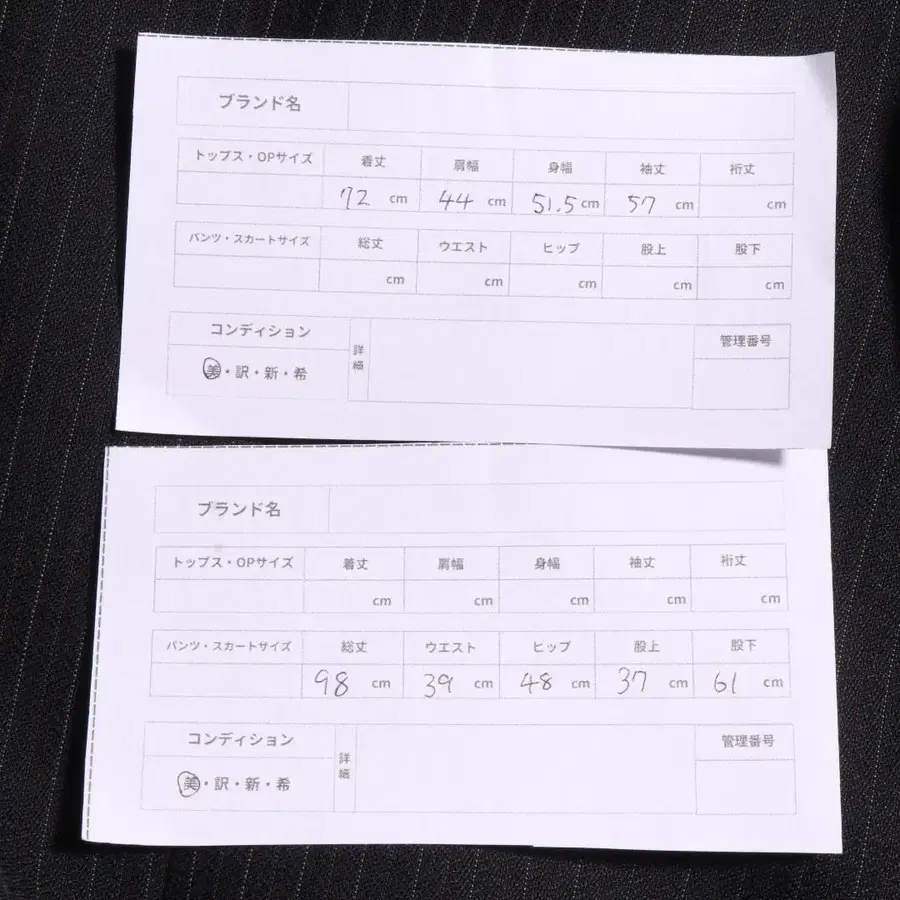 ブランド名
トップス・OPサイズ 着丈 肩幅 身幅 袖丈 裄丈
72 cm 44 cm 51.5 cm 57 cm cm
パンツ・スカートサイズ 総丈 ウエスト ヒップ 股上 股下
cm cm cm cm cm
コンディション 詳細 管理番号
美・訳・新・希
ブランド名
トップス・OPサイズ 着丈 肩幅 身幅 袖丈 裄丈
cm cm cm cm cm
パンツ・スカートサイズ 総丈 ウエスト ヒップ 股上 股下
98 cm 39 cm 48 cm 37 cm 61 cm
コンディション 詳細 管理番号
美・訳・新・希